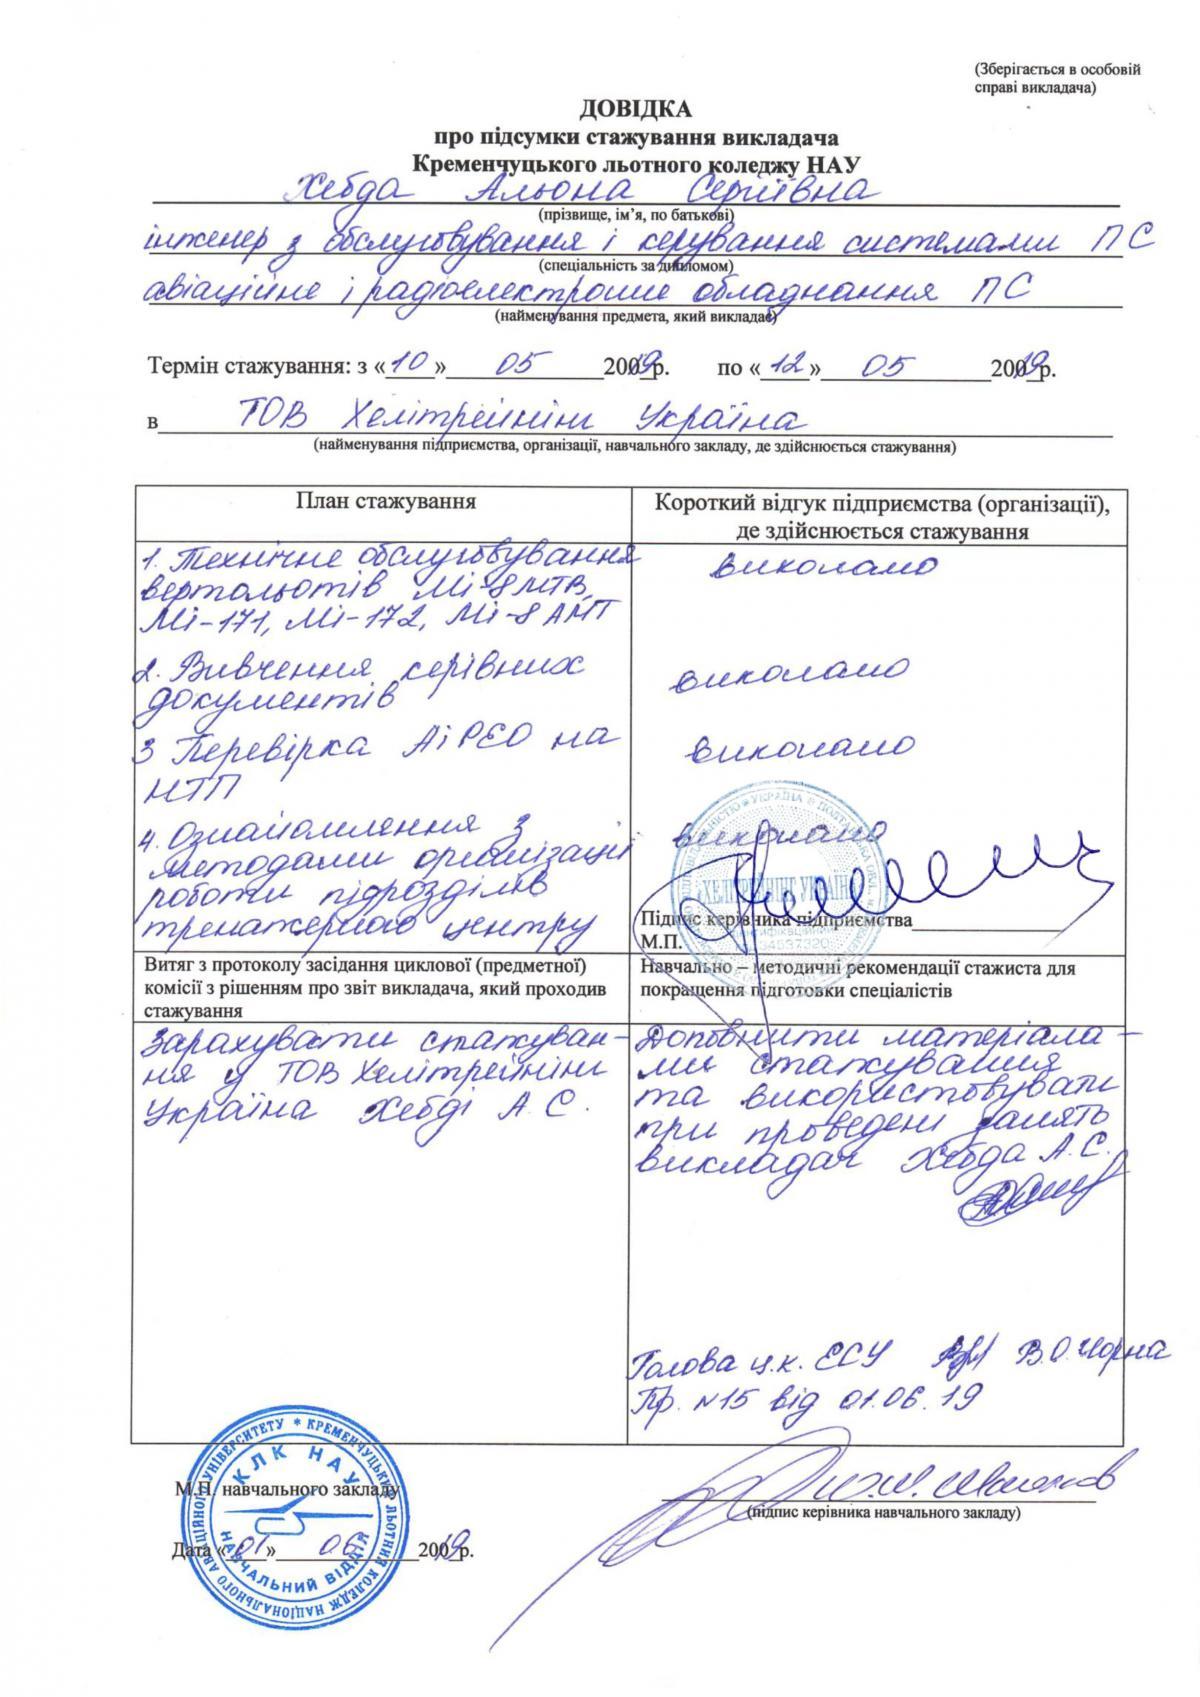 (Зберігається в особовій
справі викладача)
ДОВІДКА
про підсумки стажування викладача
Кременчуцького льотного коледжу НАУ
Хебда Альона Сергіївна
(прізвище, ім’я, по батькові)
інженер з обслуговування і керування системами ПС
(спеціальність за дипломом)
авіаційне і радіоелектронне обладнання ПС
(найменування предмета, який викладає)
Термін стажування: з «10» 05 2019 р. по «12» 05 2019 р.
в ТОВ Хелітрейнінг Україна
(найменування підприємства, організації, навчального закладу, де здійснюється стажування)
План стажування
Короткий відгук підприємства (організації),
де здійснюється стажування
1. Технічне обслуговування
вертольотів Мі-8МТВ,
Мі-171, Мі-172, Мі-8 АМТ
виконано
2. Вивчення керівних
документів
виконано
3 Перевірка АіРЕО на
НТП
виконано
4. Ознайомлення з
методами організації
роботи підрозділів
тренажерного центру
виконано
ХЕЛІТРЕЙНІНГ УКРАЇНА
34537320
Підпис керівника підприємства
М.П.
Витяг з протоколу засідання циклової (предметної)
комісії з рішенням про звіт викладача, який проходив
стажування
Навчально – методичні рекомендації стажиста для
покращення підготовки спеціалістів
Зарахувати стажуван-
ня у ТОВ Хелітрейнінг
Україна Хебді А.С.
Доповнити матеріала-
ми стажування
та використовувати
при проведені занять
викладач Хебда А.С.
Голова ц.к. ЕСУ В.О. Чорна
Пр. №15 від 01.06.19
КРЕМЕНЧУЦЬКИЙ ЛЬОТНИЙ КОЛЕДЖ НАЦІОНАЛЬНОГО АВІАЦІЙНОГО УНІВЕРСИТЕТУ
КЛК НАУ
НАВЧАЛЬНИЙ ВІДДІЛ
М.П. навчального закладу
(підпис керівника навчального закладу)
Дата «01» 06 2019 р.